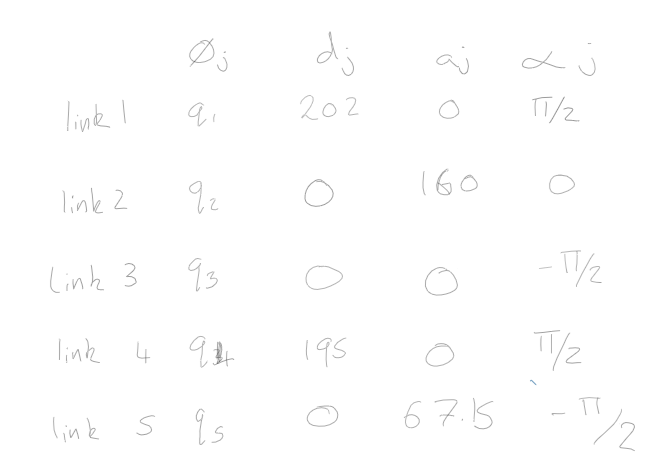 Øj dj aj αj
link 1 q1 202 0 π/2
link 2 q2 0 160 0
Link 3 q3 0 0 -π/2
link 4 q4 195 0 π/2
link 5 q5 0 67.15 -π/2